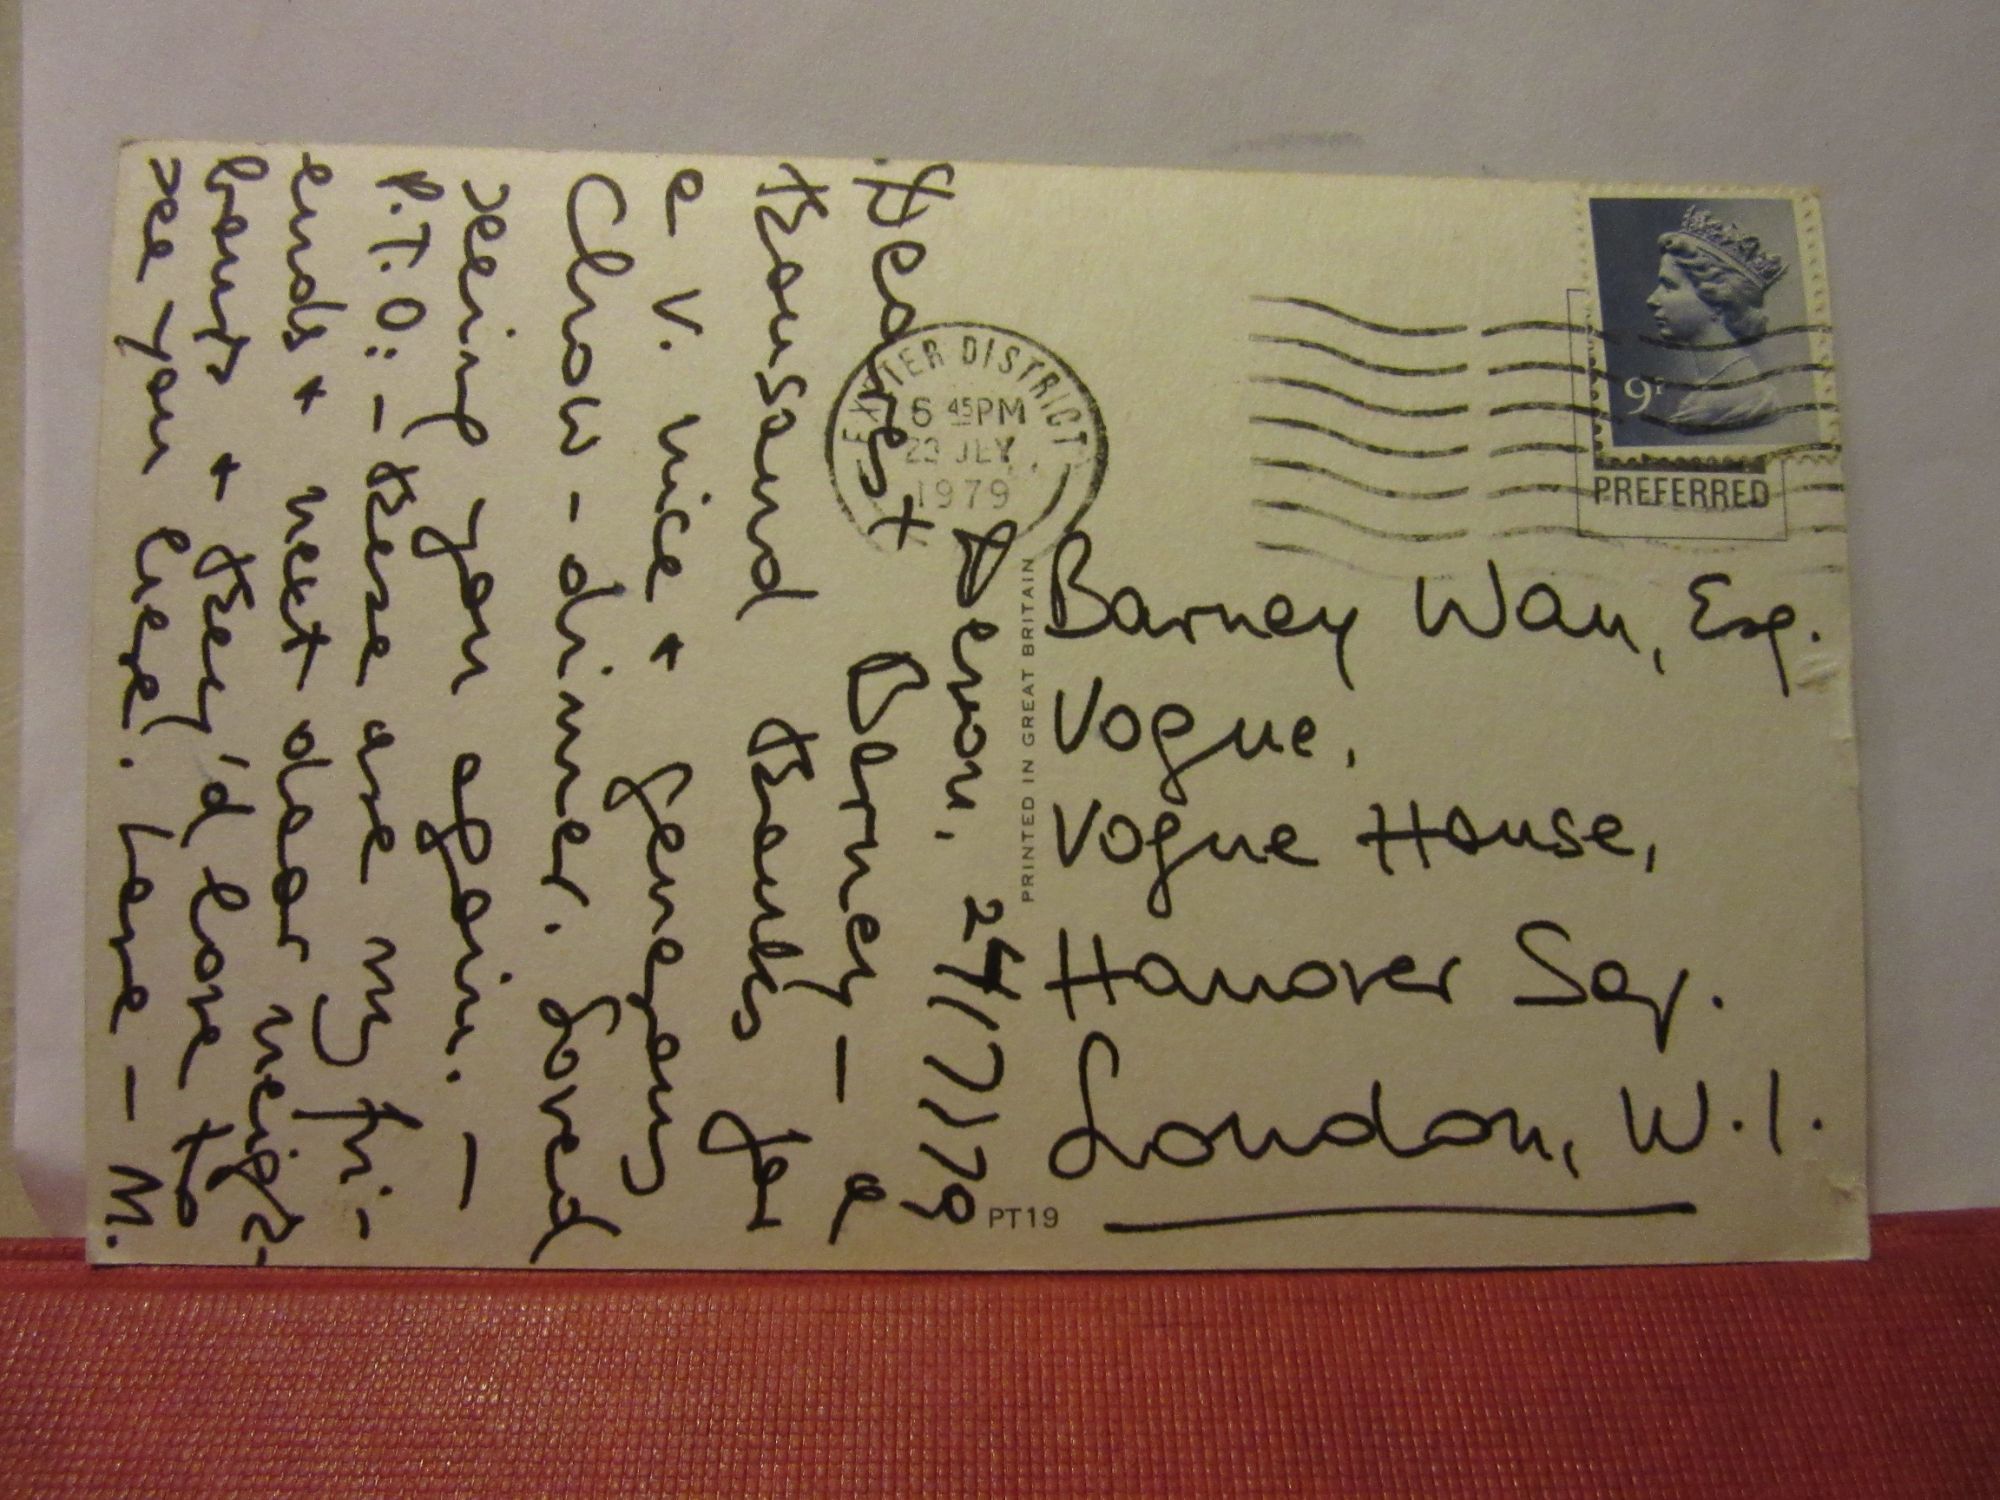 Devon, 24/7/79
Dearest Barney — a
thousand thanks for
a v. nice & generous
Chow-dinner. Loved
seeing you again. —
P.T.O: — these are my fri-
ends & next door neigh-
bours & they'd love to
see you here! Love — M.
EXETER DISTRICT
6 45PM
23 JLY
1979
9P
PREFERRED
PRINTED IN GREAT BRITAIN
Barney Wan, Esq.
Vogue,
Vogue House,
Hanover Sq.
London, W.1.
PT19